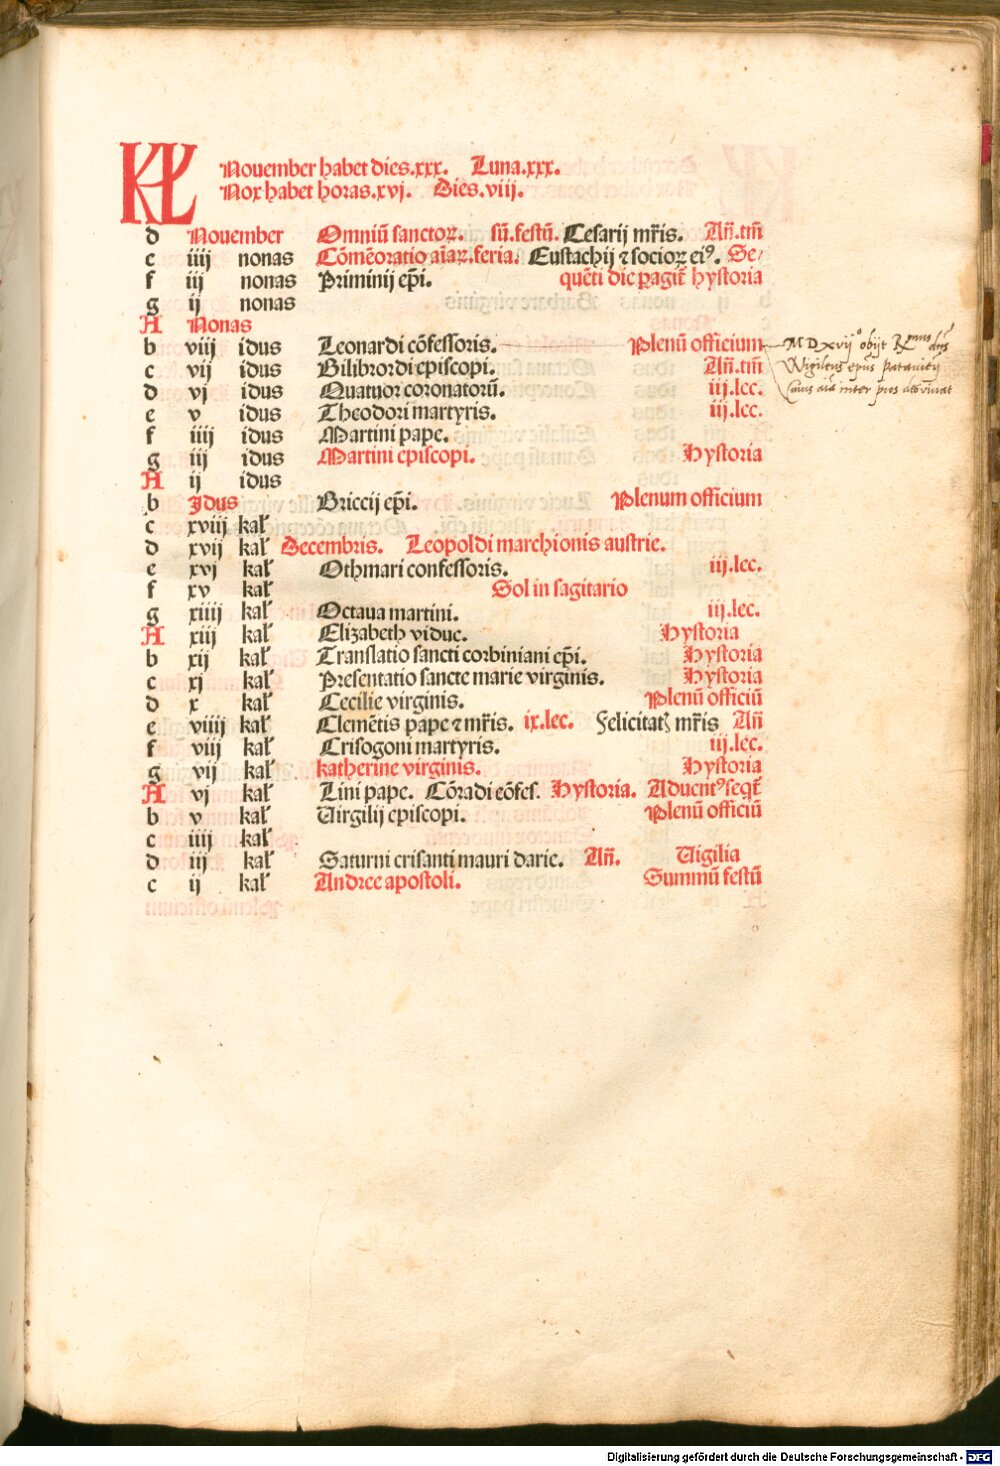 KL November habet dies.xxx. Luna.xxx.
Nox habet horas.xvj. Dies.viij.
d November Omniū sanctoꝝ. sū.festū. Cesarij mr̄is. Añ.tm̄
e iiij nonas Cōmēoratio aīaꝝ.feria. Eustachij ⁊ socioꝝ eiꝰ. Se⸗
f iij nonas Priminij ep̄i. quēti die ꝑagit̄ hystoria
g ij nonas
A Nonas
b viij idus Leonardi cōfessoris. Plenū officium
M D xvijº obijt R̄mus dn̄s
Wigileus ep̄us Patavien̄
cuius aīa inter pios
c vij idus Bilibrordi episcopi. Añ.tm̄
d vj idus Quatuor coronatorū. iij.lec.
e v idus Theodori martyris. iij.lec.
f iiij idus Martini pape.
g iij idus Martini episcopi. Hystoria
A ij idus
b Idus Briccij ep̄i. Plenum officium
c xviij kal̄
d xvij kal̄ Decembris. Leopoldi marchionis austrie.
e xvj kal̄ Othmari confessoris. iij.lec.
f xv kal̄ Sol in sagitario
g xiiij kal̄ Octaua martini. iij.lec.
A xiij kal̄ Elizabeth vidue. Hystoria
b xij kal̄ Translatio sancti corbiniani ep̄i. Hystoria
c xj kal̄ Presentatio sancte marie virginis. Hystoria
d x kal̄ Cecilie virginis. Plenū officiū
e viiij kal̄ Clemētis pape ⁊ mr̄is. ix.lec. Felicitatꝭ mr̄is Añ
f viij kal̄ Crisogoni martyris. iij.lec.
g vij kal̄ katherine virginis. Hystoria
A vj kal̄ Lini pape. Cōradi cōfes. Hystoria. Aduentꝰ seqt̄
b v kal̄ Uirgilij episcopi. Plenū officiū
c iiij kal̄
d iij kal̄ Saturni crisanti mauri darie. Añ. Uigilia
e ij kal̄ Andree apostoli. Summū festū
Digitalisierung gefördert durch die Deutsche Forschungsgemeinschaft - DFG